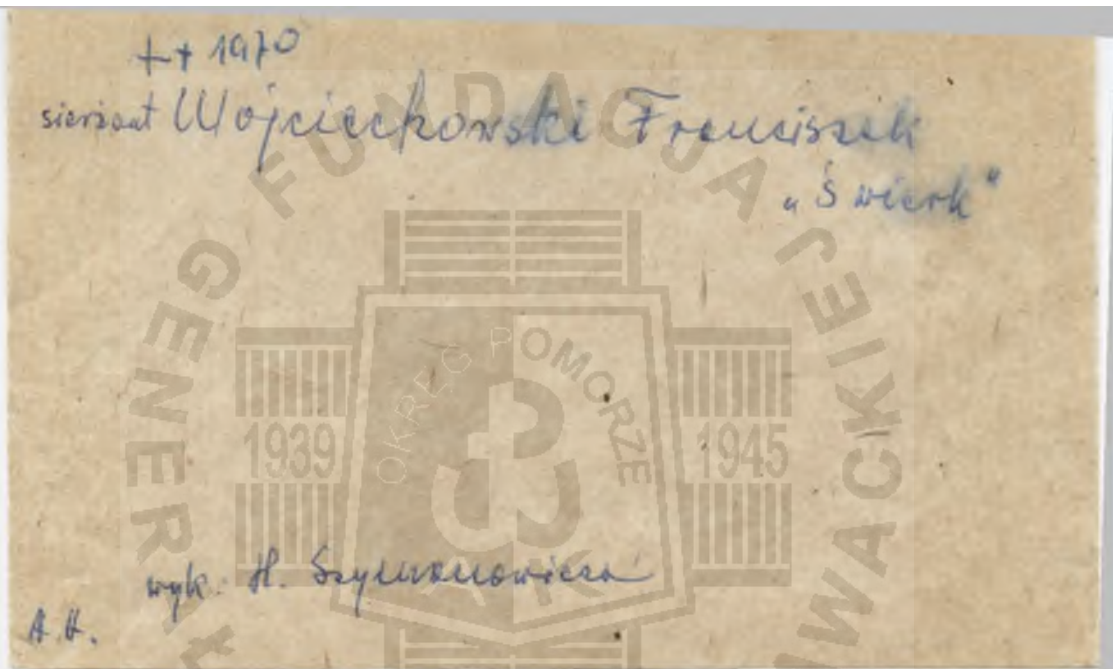 ++ 1970
sierżant Wojciechowski Franciszek
„Świerk"
wyk. H. Szymanowicza
A.H.
FUNDACJA GENER WACKIEJ
OKRĘG POMORZE
1939 1945
AK